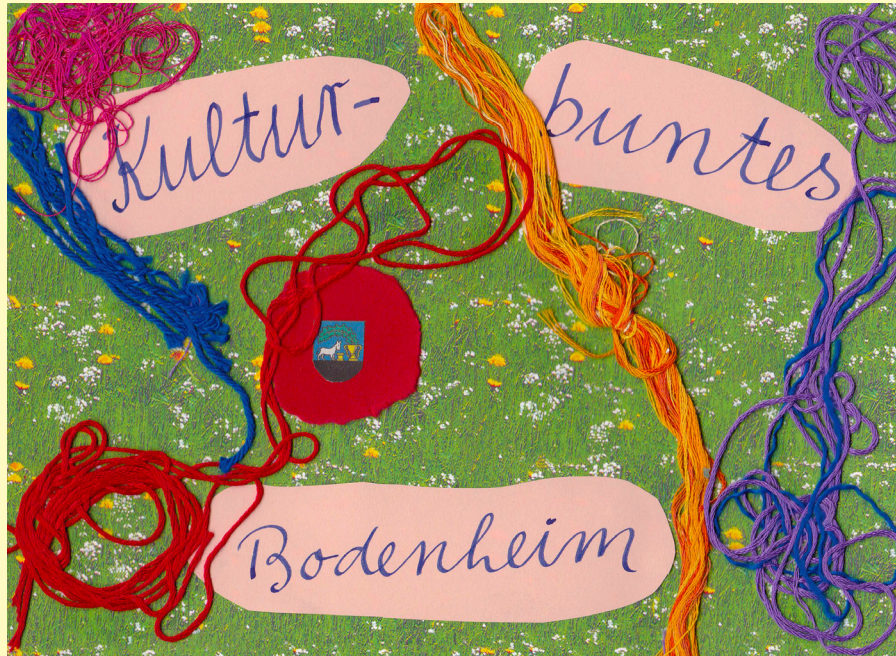 Kultur-
buntes
Bodenheim